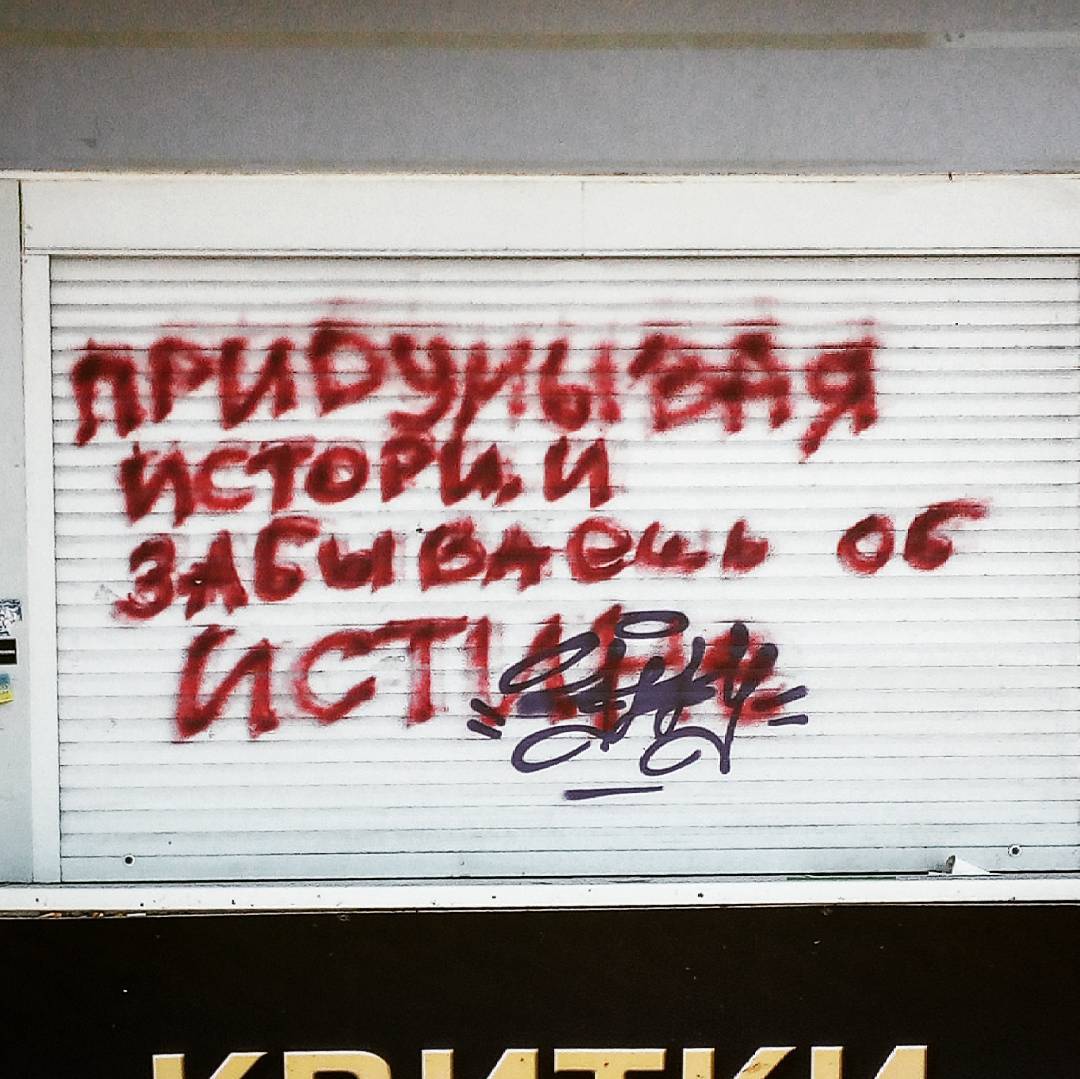 ПРИДУМЫВАЯ
ИСТОРИ, И
ЗАБЫВАЕШЬ ОБ
ИСТИНЕ
КВИТКИ